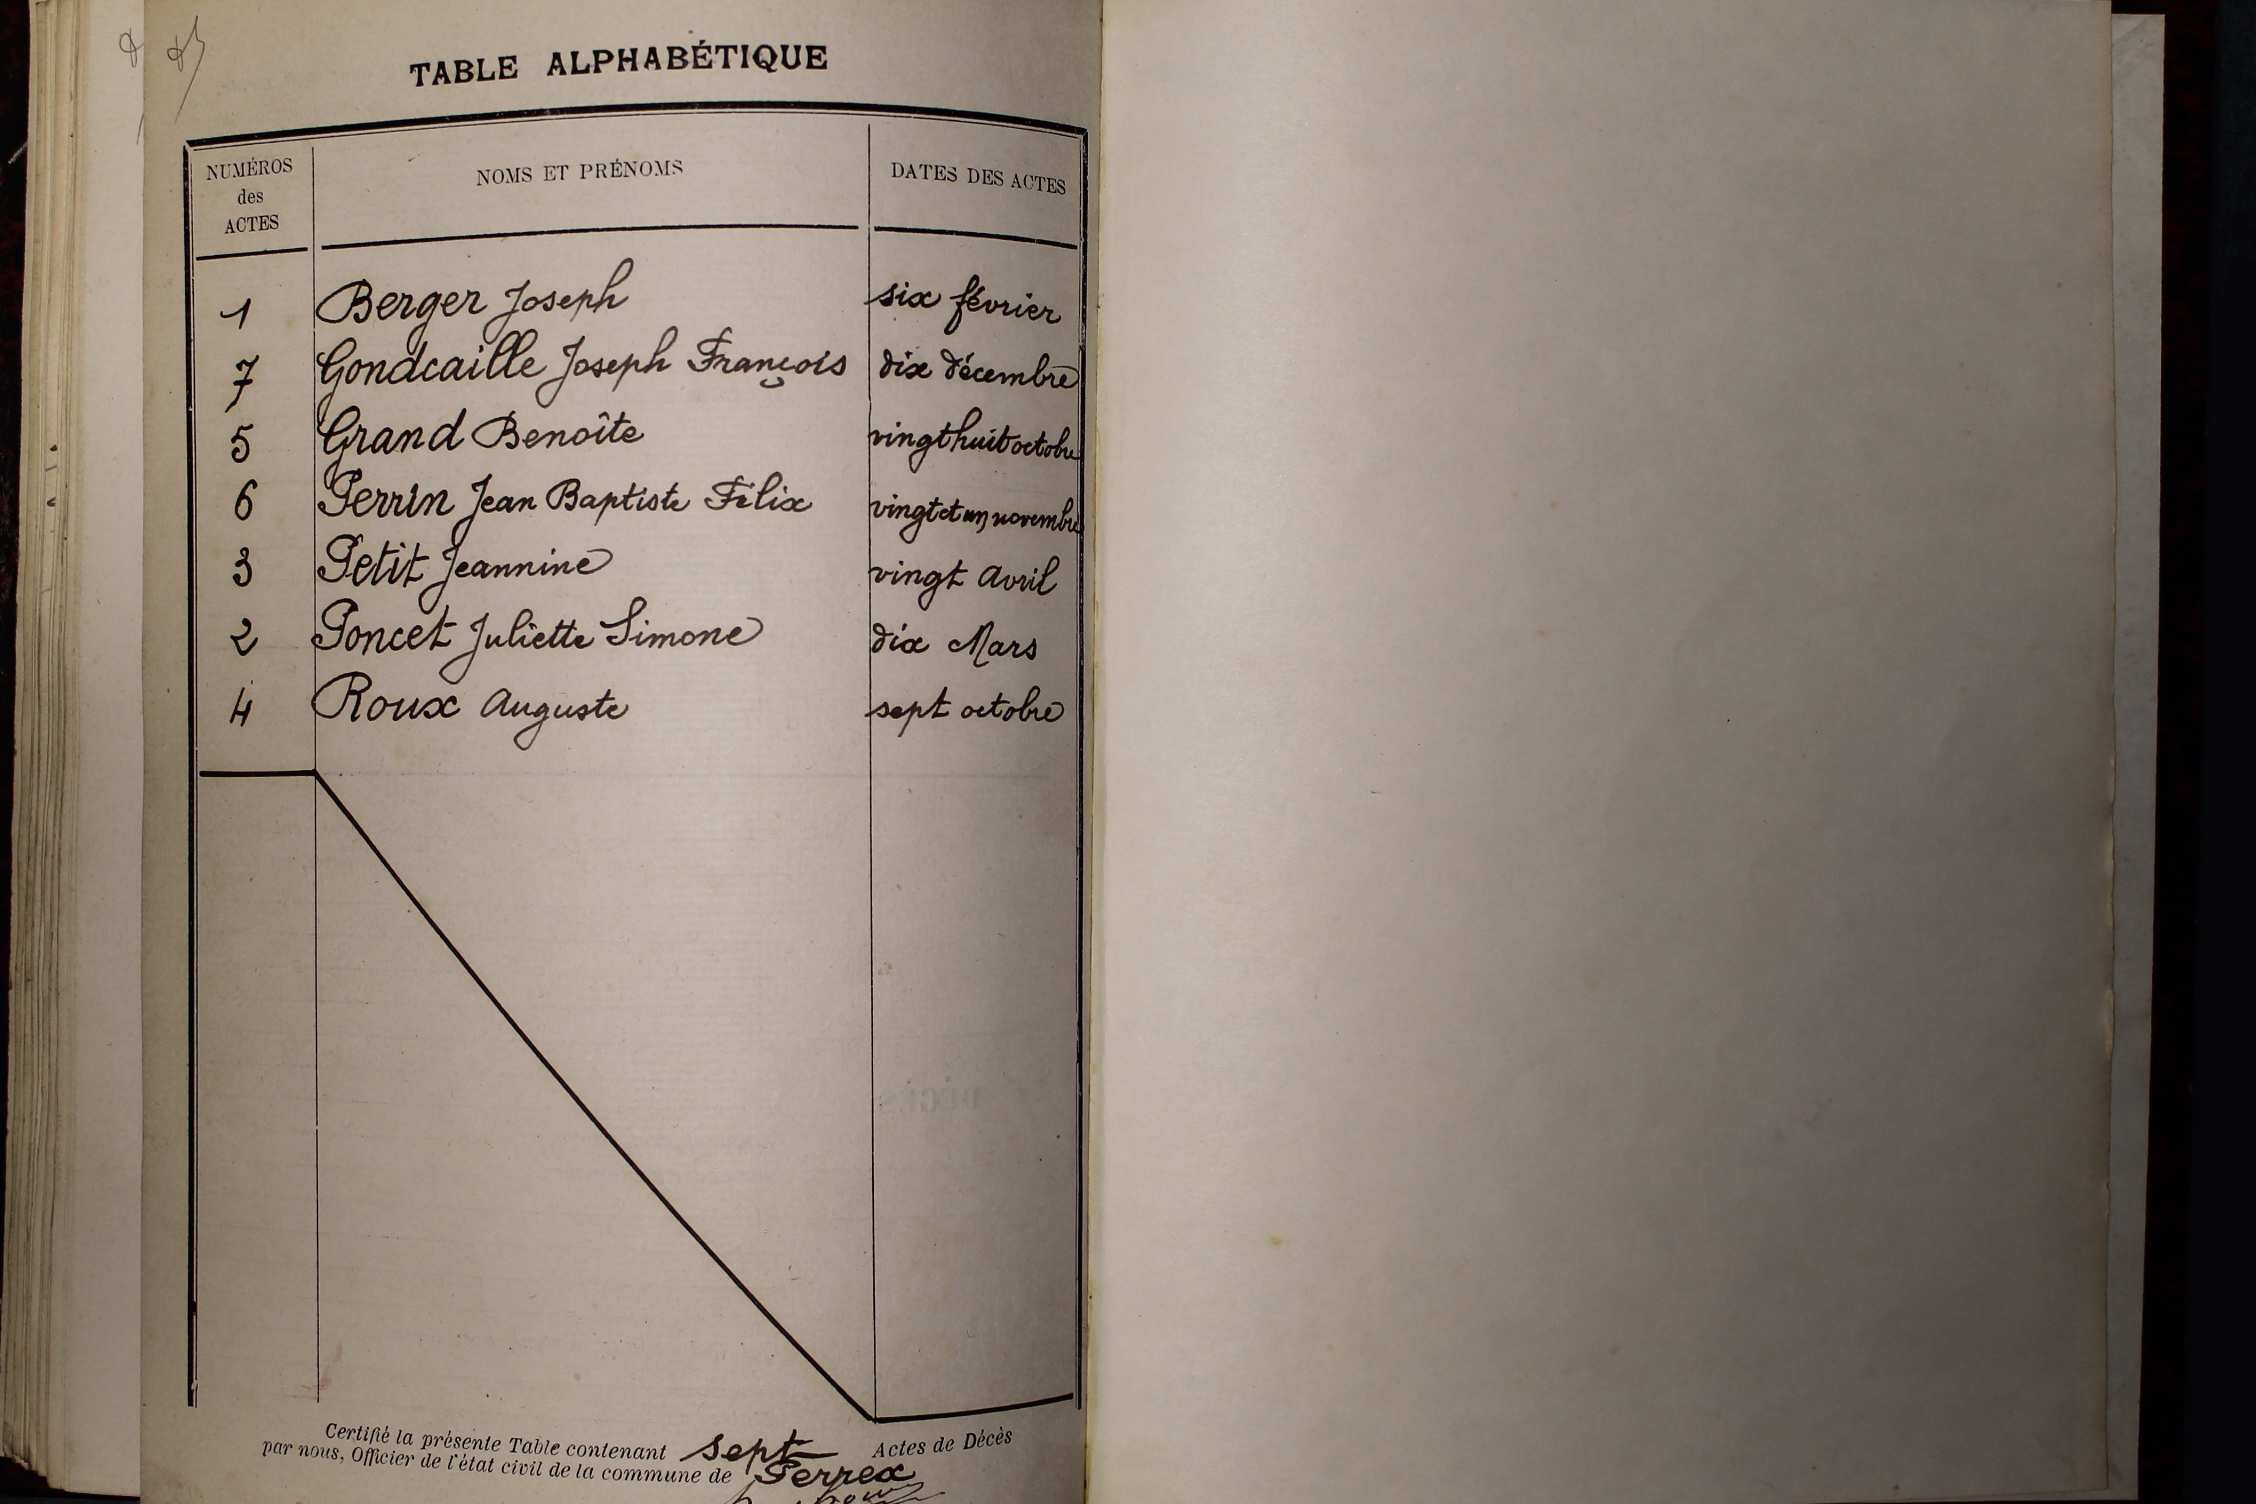 TABLE ALPHABÉTIQUE
NUMÉROS des ACTES
NOMS ET PRÉNOMS
DATES DES ACTES
1 Berger Joseph six février
7 Gondcaille Joseph François dix décembre
5 Grand Benoîte vingt huit octobre
6 Perrin Jean Baptiste Félix vingt et un novembre
3 Petit Jeannine vingt Avril
2 Poncet Juliette Simone dix Mars
4 Roux Auguste sept octobre
Certifié la présente Table contenant sept Actes de Décès
par nous, Officier de l'état civil de la commune de Perrex